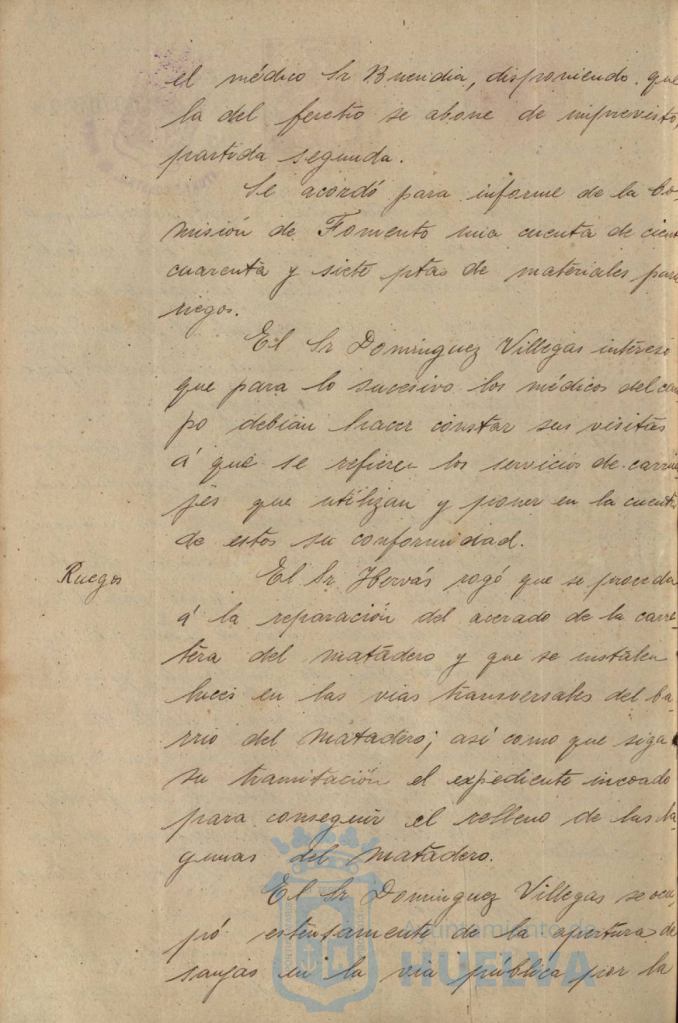 el médico Sr Buendia, disponiendo que
la del feretro se abone de imprevistos,
partida segunda.
Se acordó para informe de la Co-
misión de Fomento una cuenta de cien
cuarenta y siete ptas de materiales para
riegos.
El Sr Dominguez Villegas interesó
que para lo sucesivo los médicos del cam
po debian hacer constar sus visitas
á que se refieren los servicios de carrua
jes que utilizan y poner en la cuenta
de estos su conformidad.
Ruegos
El Sr. Hervás rogó que se proceda
á la reparación del acerado de la carre-
tera del matadero y que se instalen
luces en las vias transversales del ba-
rrio del Matadero; así como que siga
su tramitación el expediente incoado
para conseguir el relleno de las la-
gunas del Matadero.
El Sr Dominguez Villegas se ocu
pó extensamente de la apertura de
sanjas en la via publica por la
Ayuntamiento de
HUELVA